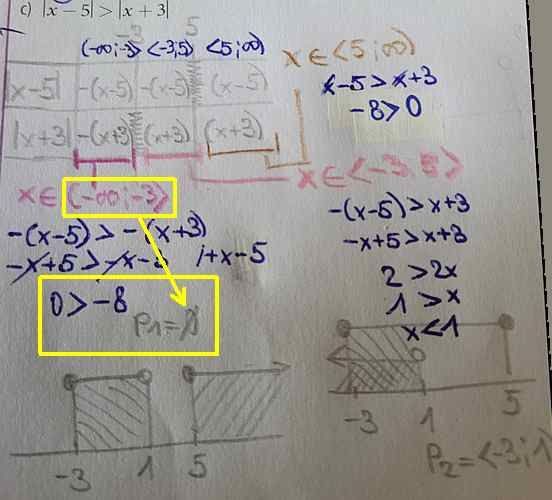 c) |x − 5| > |x + 3|
-3 5
(-∞;-3> <-3;5) <5;∞)
x ∈ <5;∞)
|x-5| -(x-5) -(x-5) (x-5)
x-5 > x+3
-8 > 0
|x+3| -(x+3) (x+3) (x+3)
x ∈ <-3;5>
x ∈ (-∞;-3>
-(x-5) > -(x+3)
-x+5 > -x-3 /+x-5
0 > -8
P1=∅
-(x-5) > x+3
-x+5 > x+3
2 > 2x
1 > x
x < 1
-3 1 5
-3 1 5
P2=<-3;1)